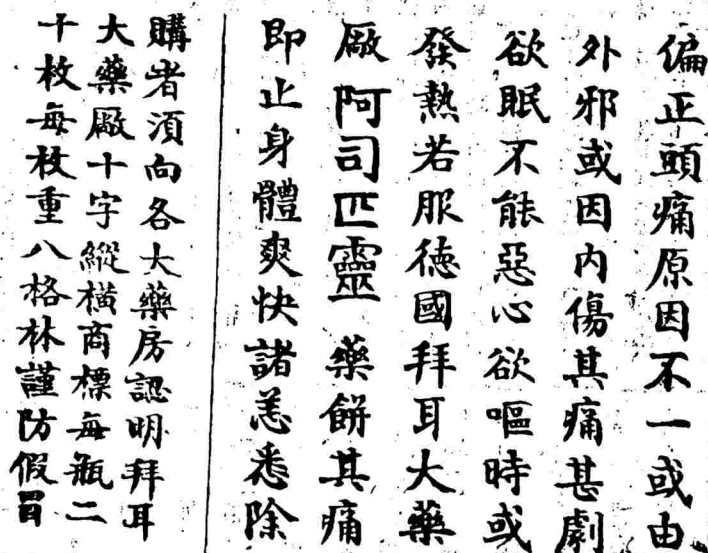 偏正頭痛原因不一或由
外邪或因內傷其痛甚劇
欲眠不能惡心欲嘔時或
發熱若服德國拜耳大藥
廠阿司匹靈 藥餅其痛
即止身體爽快諸恙悉除
購者須向各大藥房認明拜耳
大藥厰十字縱橫商標每瓶二
十枚每枚重八格林謹防假冒